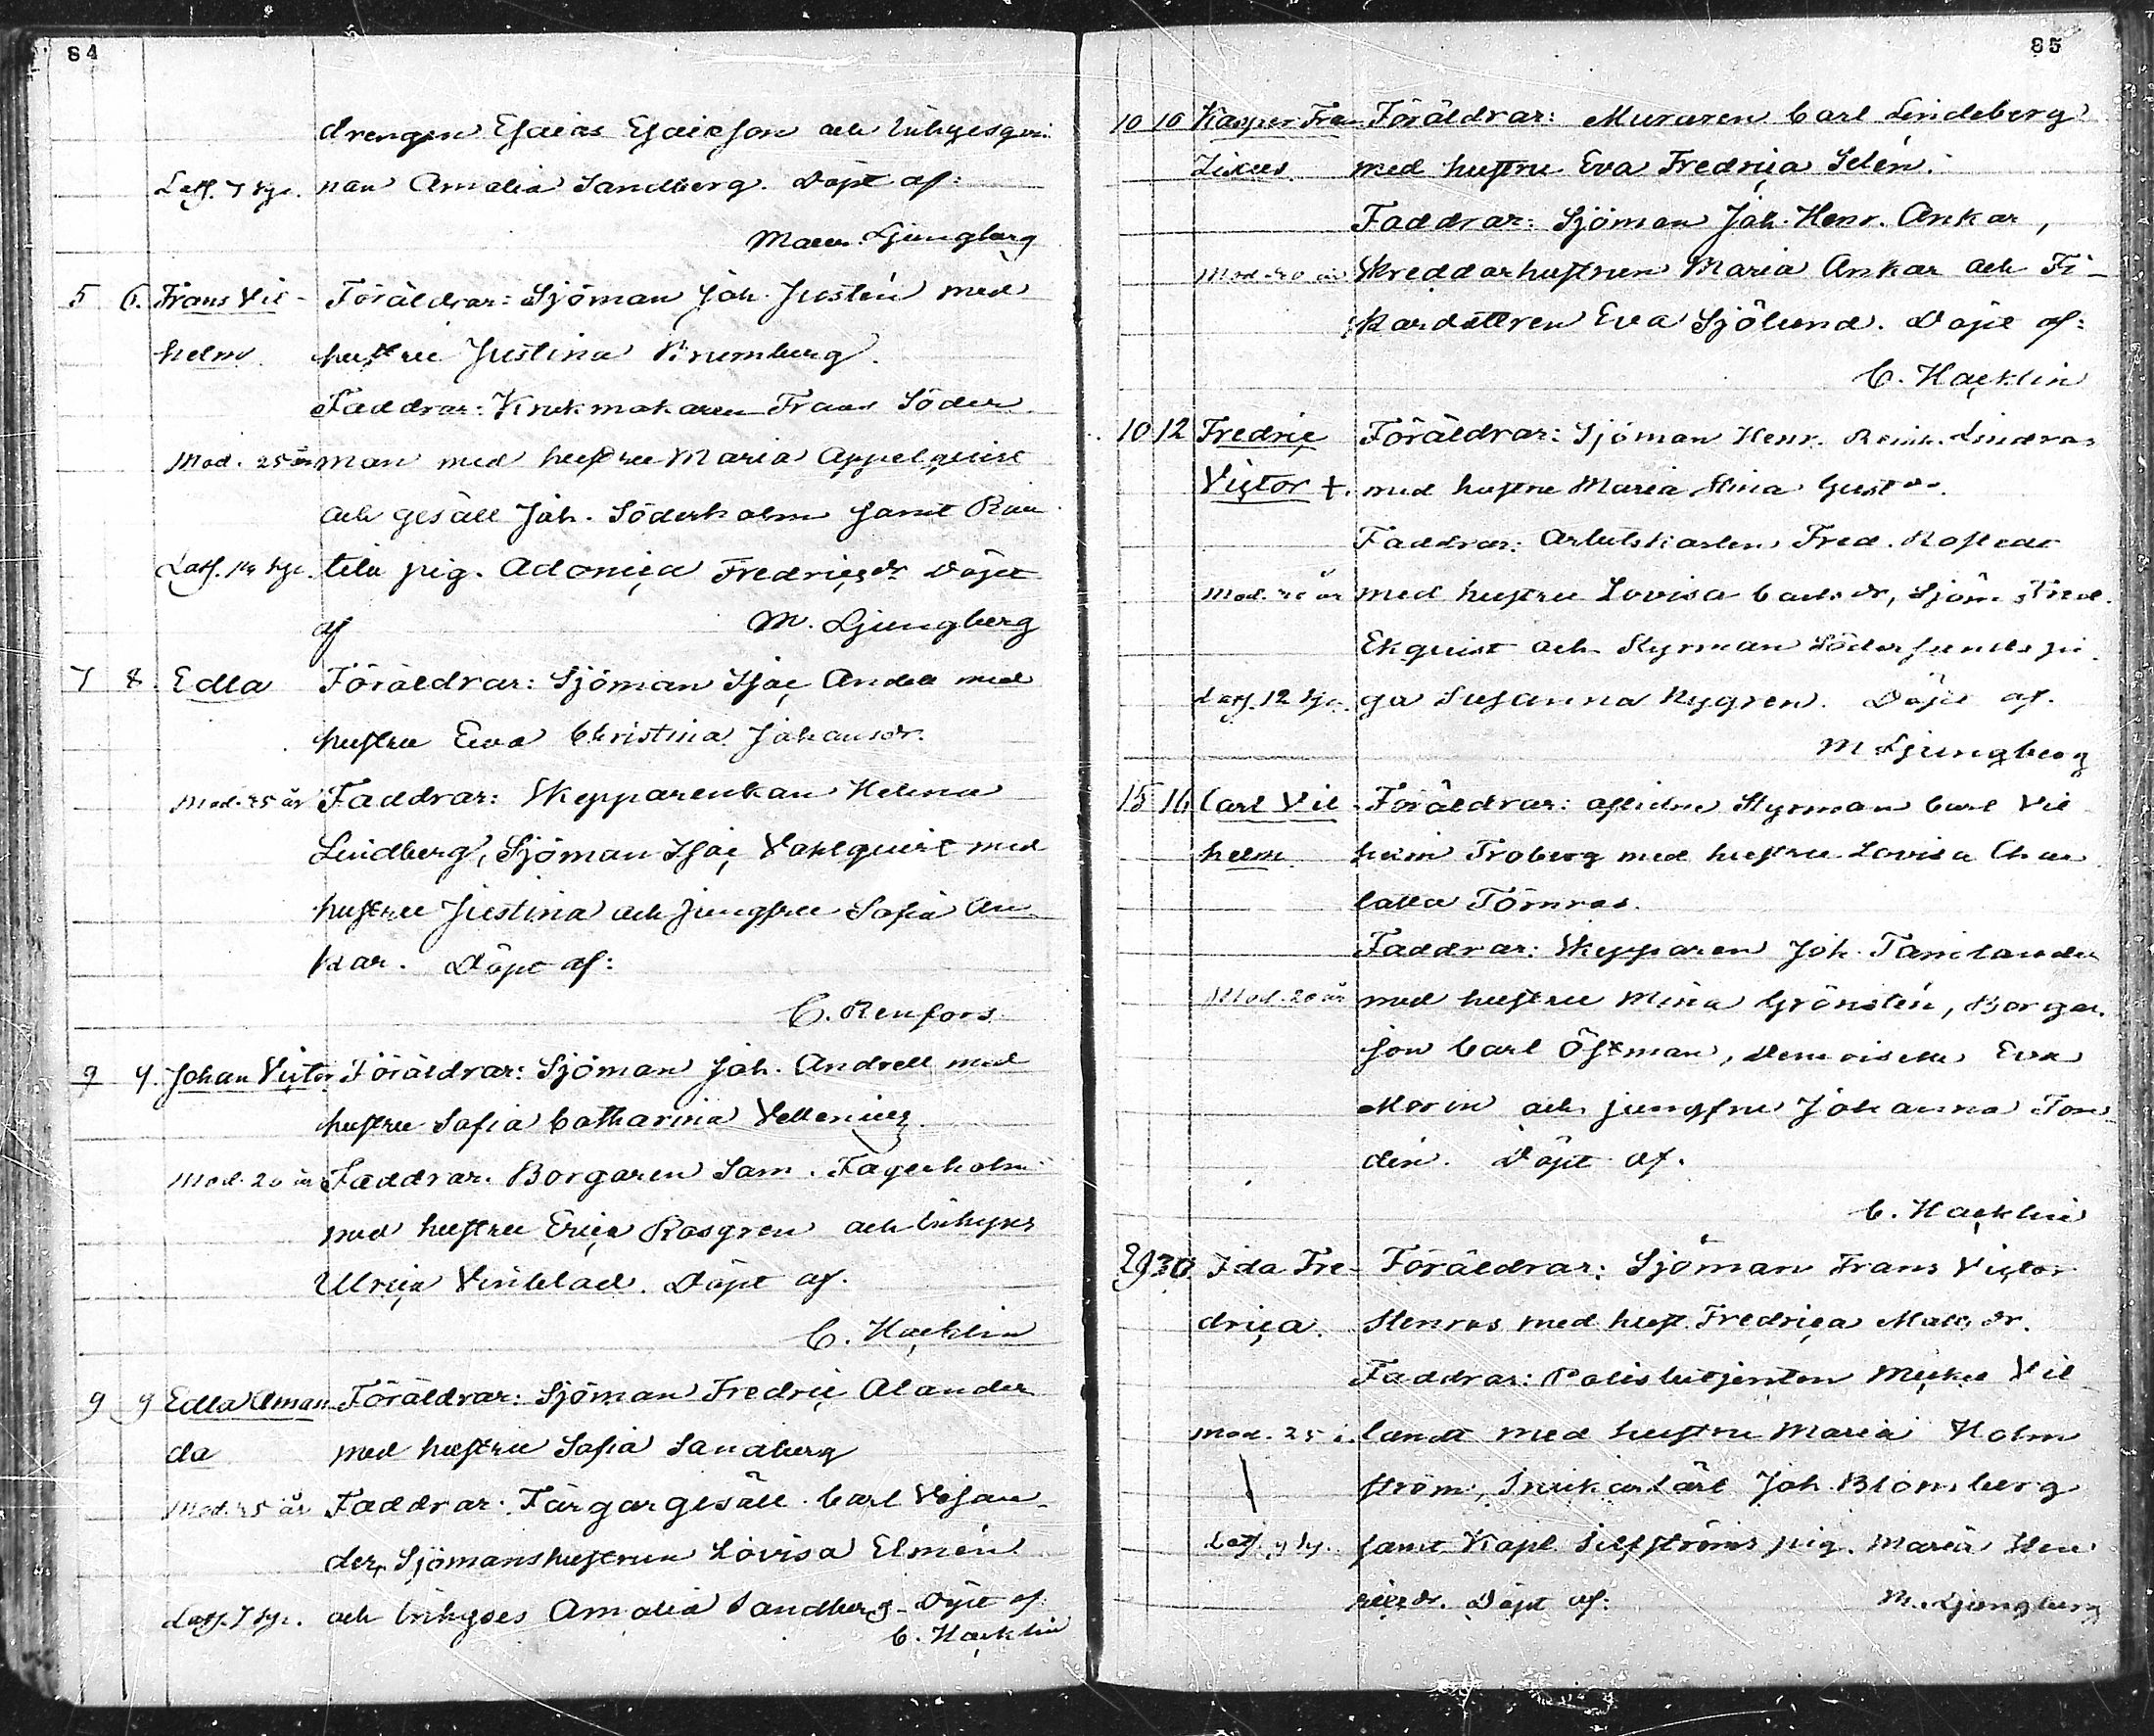 84
drengen Esaias Esaiesson och inhysesqvin
Latf. 7 kp. nan Amalia Sandberg. Döpt af:
Maur. Ljungberg
5 6. Frans Vil- Föräldrar: Sjöman Joh. Justén med
helm. hustru Justina Brumberg.
Faddrar: Krukmakaren Frans Söder
Mod. 25 år man med hustru Maria Appelquist
och gesäll Joh. Söderholm samt Rau
Latf. 14 kp. tila pig. Adoniça Fredriçsdr Döpt
af M. Ljungberg
7 8. Edla Föräldrar: Sjöman Isaç Andell med
hustru Eva Christina Johansdr.
Mod. 25 år Faddrar: Skepparenkan Helena
Lindberg, Sjöman Isaç Vahlquist med
hustru Justina och jungfru Sofia An
kar. Döpt af:
C. Renfors
9 9. Johan Viçtor Föräldrar: Sjöman Joh. Andrell med
hustru Sofia Catharina Vellenius.
Mod. 20 år Faddrar. Borgaren Sam. Fagerholm
med hustru Eriça Rosgren och inhyses
Ulriça Vinblad. Döpt af.
C. Haçklin
9 9 Edla Aman Föräldrar: Sjöman Fredriç Alander
da med hustru Sofia Sandberg
Mod. 25 år Faddrar. Färgargesäll Carl Vesan-
der, Sjömanshustrun Lovisa Elmén
Latf. 7 kp. och inhyses Amalia Sandberg. Döpt af
C. Haçklin
85
10 10 Kasper Fran Föräldrar: Muraren Carl Lindeberg
ziskus. med hustru Eva Fredriça Selén.
Faddrar: Sjöman Joh. Henr. Ankar,
Mod. 20 år Skreddarhustrun Maria Ankar och Fi-
skardottren Eva Sjölund. Döpt af:
C. Haçklin
10 12 Fredriç Föräldrar: Sjöman Henr. Reinh. Lindroos
Viçtor +. med hustru Maria Stina Gust
Faddrar: Arbetskarlen Fred. Rostedt
Mod. år med hustru Lovisa Carlsdr, Sjöm. Fred.
Ekquist och Styrman Södersunds pi
Latf. 12 kp. ga Susanna Nygren. Döpt af.
M Ljungberg
15 16 Carl Vil Föräldrar: aflidne Styrman Carl Vil
helm helm Froberg med hustru Lovisa Char
lotta Törnroos.
Faddrar: Skepparen Joh. Tamlander
Mod. 20 år med hustru Mina Grönstén, Borgar
son Carl Östman, Demoiselle Eva
Morin och jungfru Johanna Ton
dén. Döpt af.
C. Haçklin
29 30 Ida Fre- Föräldrar: Sjöman Frans Viçtor
driça. Stenroos med hust. Fredriça Mattsdr.
Faddrar: Polisbetjenten Miçkel Vil
Mod. 25 å. landt med hustru Maria Holm
ström, Joh. Blomberg
Latf. 9 kp. samt Kapl. Silfströms pig. Maria Hen
riçsdr. Döpt af: M. Ljungberg